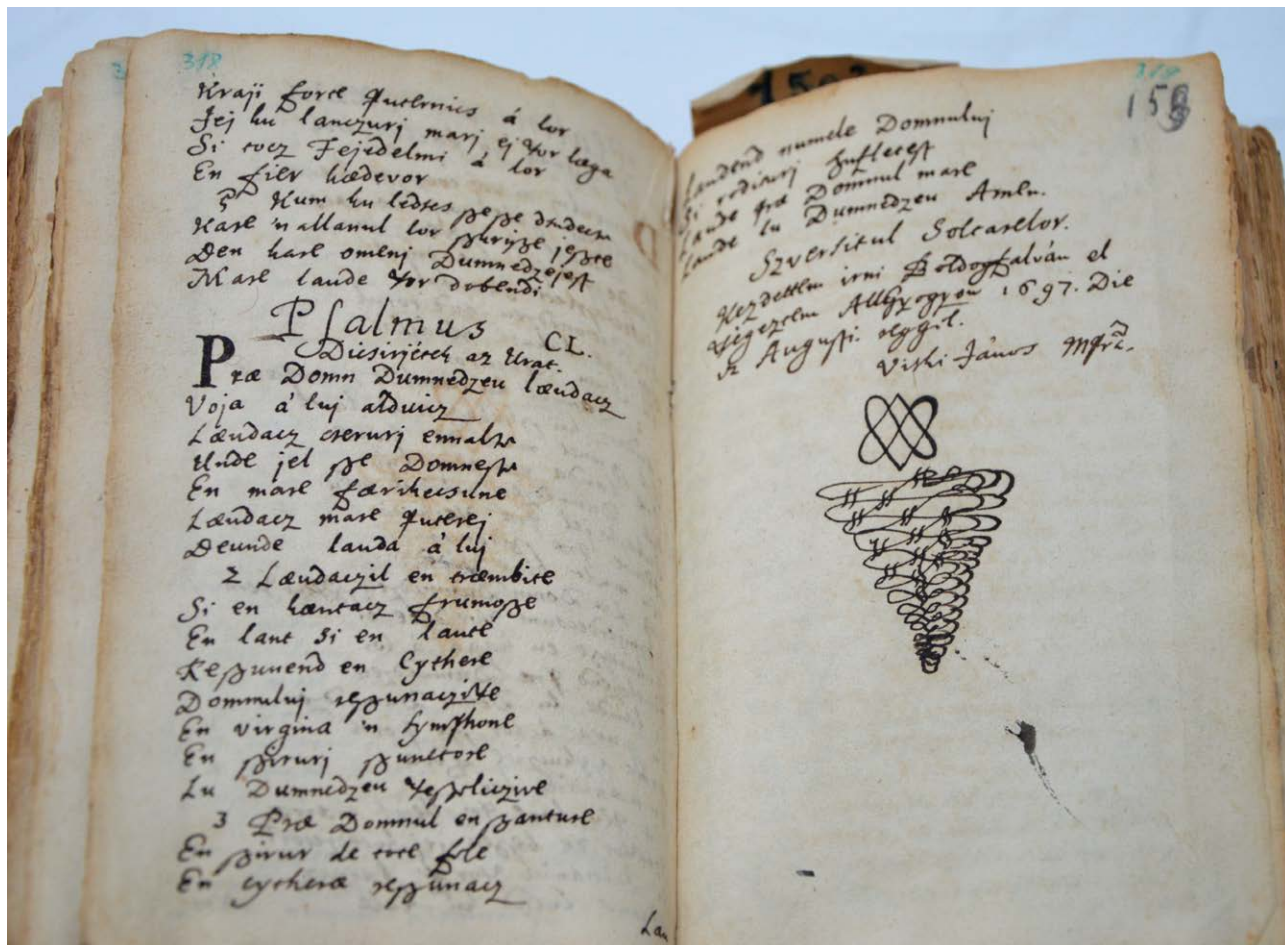 318
Kraji forte Puternics á lor
Jej ku lanczurj marj, ej vor læga
Si tocz Fejedelmi á lor
En fier kædevor
5 Kum ku ledses
Kare 'n allanul lor
Den kare omenj Dumnedzejest
Mare laude vor dobendi
Psalmus
CL.
Dicsirjétek az Urat.
Præ Domn Dumnedzeu lændacz
Voja á luj
Lændacz cserurj ennalte
Unde jel sze Domneste
En mare færikecsune
Lændacz mare Puterej
Deunde lauda á luj
2 Lændaczil en træmbite
Si en kæntacz frumosze
En lant si en laute
Reszunend en Cythere
Domnuluj reszunaczive
En virgina 'n symphone
En szirurj szunetore
Lu Dumnedzeu veszeliczive
3 Præ Domnul en szanture
En szirur de tote fele
En cytheræ reszunacz
Lau
319
159
Laudend numele Domnuluj
Si roditurj sufletest
Laude præ Domnul mare
Laude lu Dumnedzeu Amen.
Szversitul Soltarelor.
Kezdettem irni Boldogfalván el
végezem Allgyogyon 1697. Die
Augusti. reggel.
Viski János mpr.